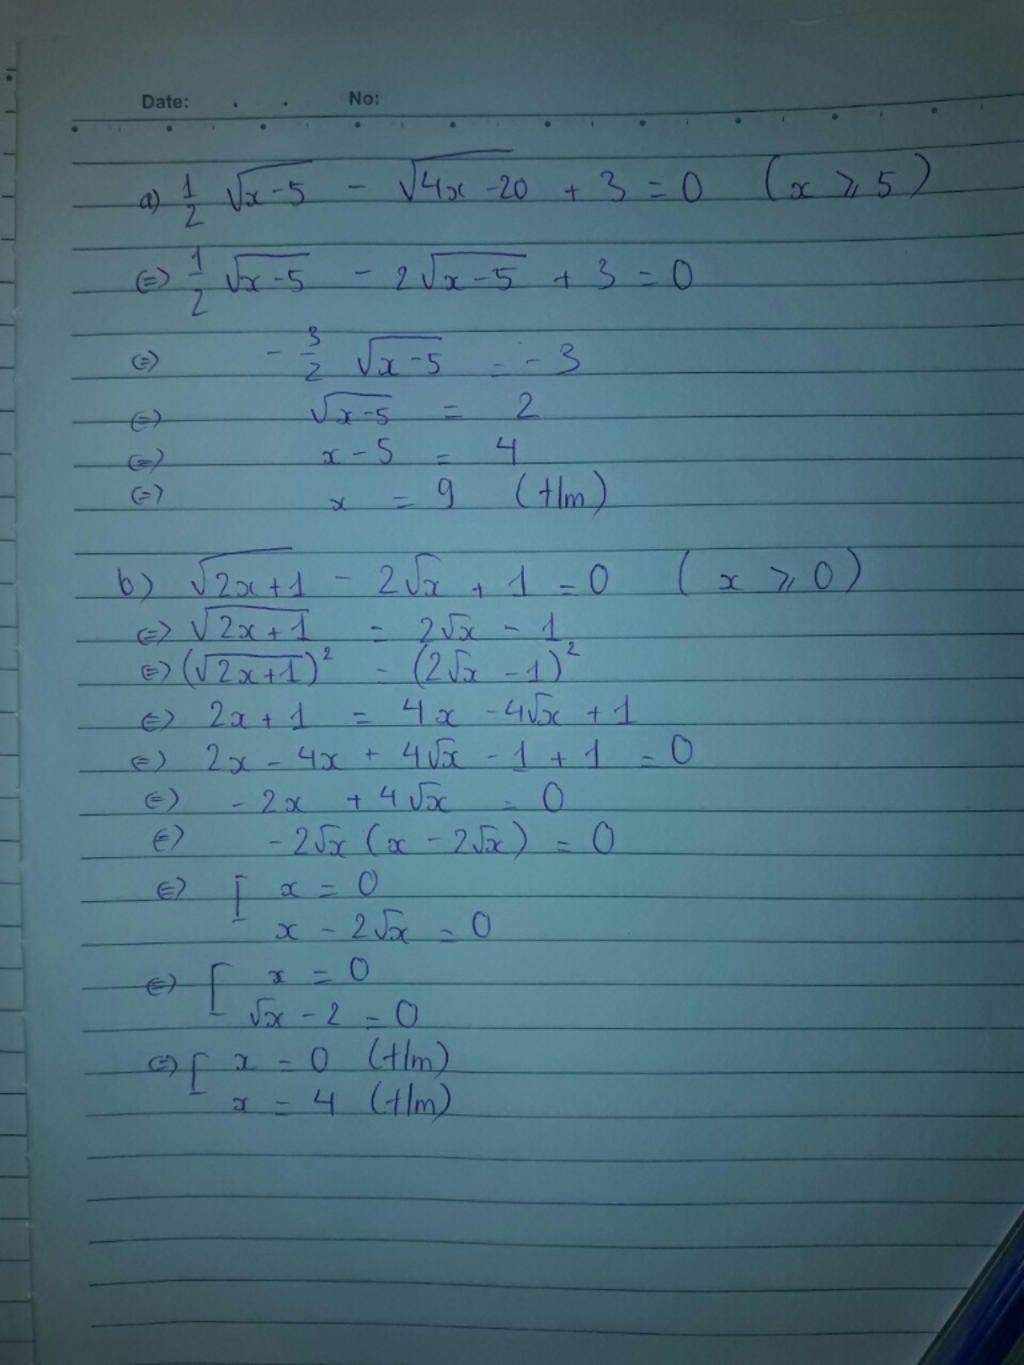 Date: . . No:
a) 1/2 √(x-5) - √(4x-20) + 3 = 0 (x ⩾ 5)
(=) 1/2 √(x-5) - 2√(x-5) + 3 = 0
(=) - 3/2 √(x-5) = - 3
(=) √(x-5) = 2
(=) x - 5 = 4
(=) x = 9 (t/m)
b) √(2x+1) - 2√x + 1 = 0 (x ⩾ 0)
(=) √(2x+1) = 2√x - 1
(=) (√(2x+1))² = (2√x - 1)²
(=) 2x + 1 = 4x - 4√x + 1
(=) 2x - 4x + 4√x - 1 + 1 = 0
(=) - 2x + 4√x = 0
(=) - 2√x (x - 2√x) = 0
(=) [ x = 0
x - 2√x = 0
(=) [ x = 0
√x - 2 = 0
(=) [ x = 0 (t/m)
x = 4 (t/m)